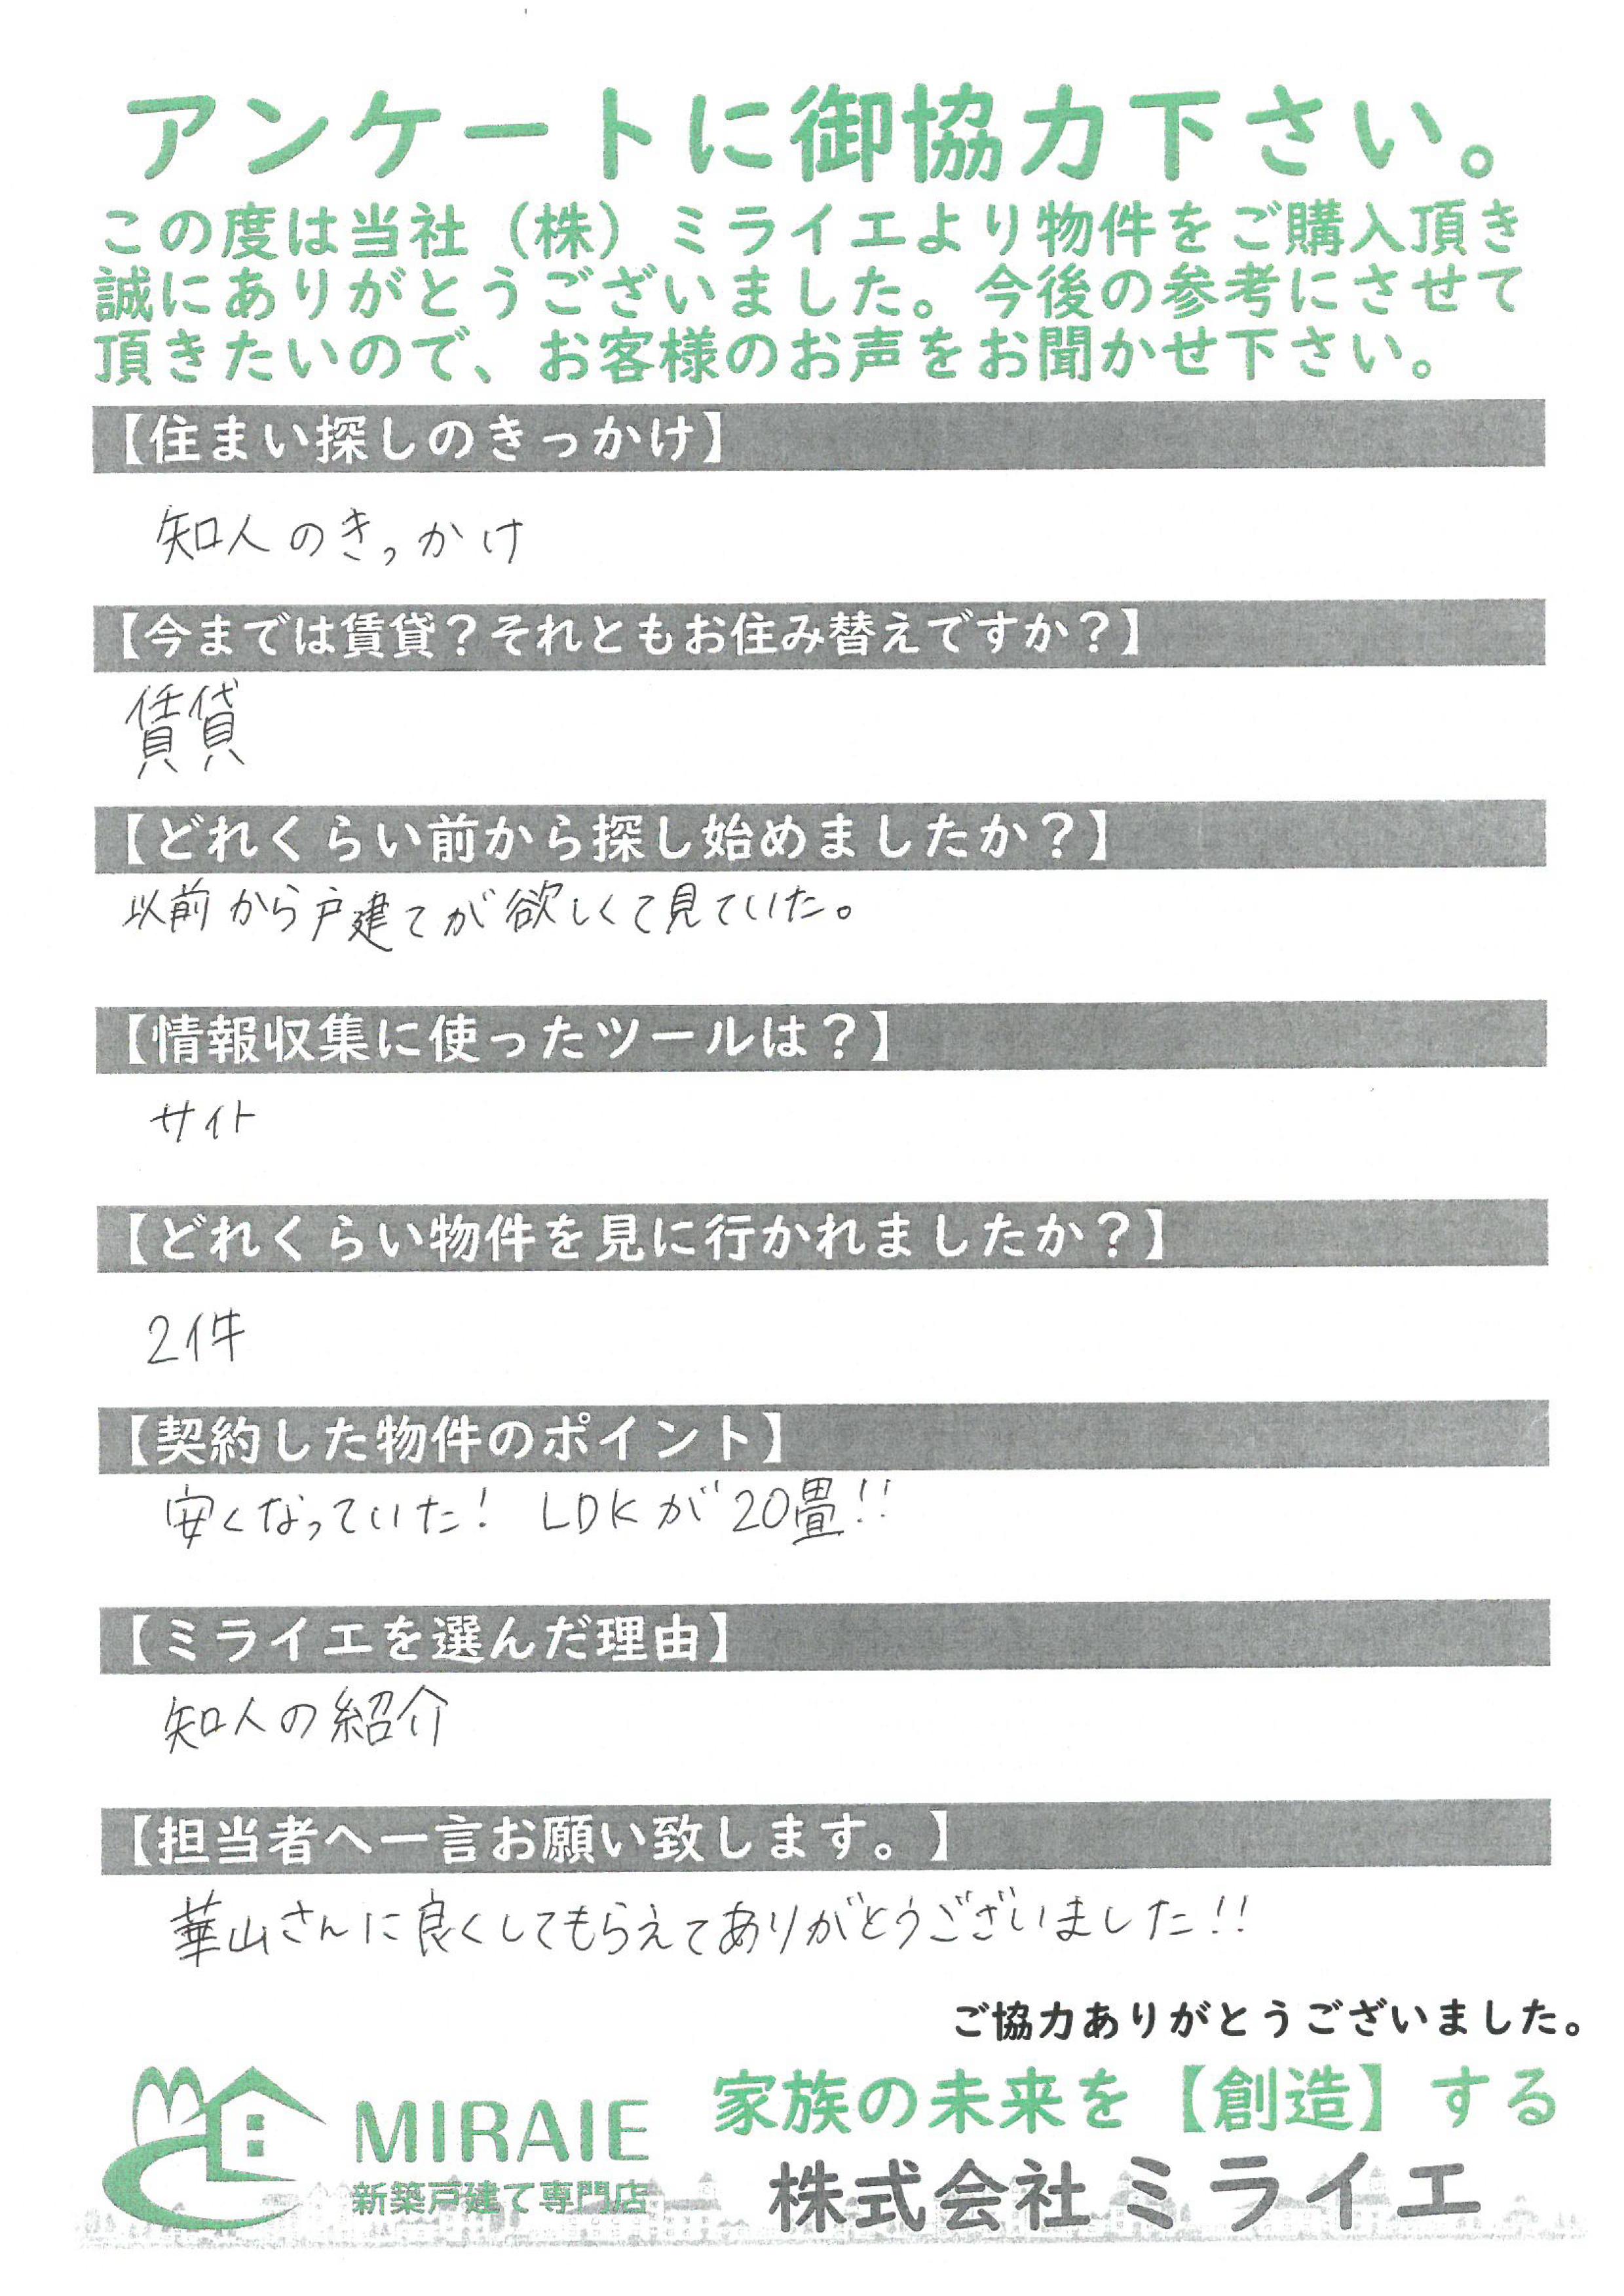 アンケートに御協力下さい。
この度は当社（株）ミライエより物件をご購入頂き
誠にありがとうございました。今後の参考にさせて
頂きたいので、お客様のお声をお聞かせ下さい。
【住まい探しのきっかけ】
知人のきっかけ
【今までは賃貸？それともお住み替えですか？】
賃貸
【どれくらい前から探し始めましたか？】
以前から戸建てが欲しくて見ていた。
【情報収集に使ったツールは？】
サイト
【どれくらい物件を見に行かれましたか？】
2件
【契約した物件のポイント】
安くなっていた! LDKが20畳!!
【ミライエを選んだ理由】
知人の紹介
【担当者へ一言お願い致します。】
華山さんに良くしてもらえてありがとうございました!!
ご協力ありがとうございました。
家族の未来を【創造】する
MIRAIE
新築戸建て専門店
株式会社ミライエ